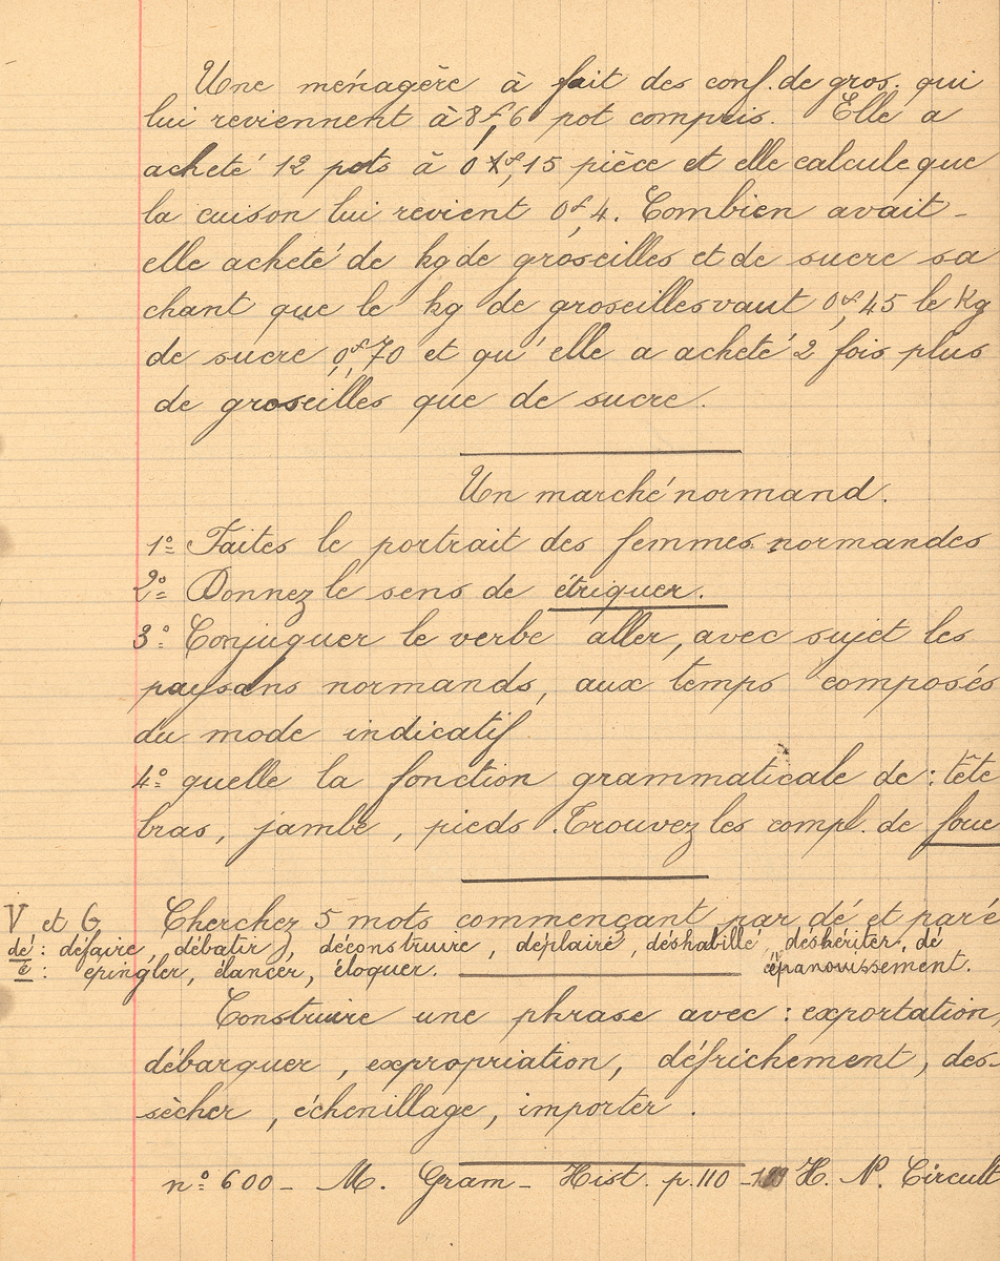 Une ménagère à fait des conf. de gros. qui
lui reviennent à 8f,6 pot compris. Elle a
acheté 12 pots à 0f,15 pièce et elle calcule que
la cuison lui revient 0f,4. Combien avait-
elle acheté de kg de groseilles et de sucre sa
chant que le kg de groseilles vaut 0f,45 le Kg
de sucre 0f,70 et qu'elle a acheté 2 fois plus
de groseilles que de sucre.
Un marché normand.
1º Faites le portrait des femmes normandes
2º Donnez le sens de étriquer.
3º Conjuguer le verbe aller, avec sujet les
paysans normands, aux temps composés
du mode indicatif
4º quelle la fonction grammaticale de : tête
bras, jambe, pieds. Trouvez les compl. de
V et G Cherchez 5 mots commençant par dé et par é
dé : défaire, débatir, déconstruire, déplaire, déshabillé, déshériter, dé
é : epingler, élancer, éloquer. épanouissement.
Construire une phrase avec : exportation,
débarquer, expropriation, défrichement, des-
sècher, échenillage, importer.
nº 600 - M. Gram - Hist. p. 110 - H. N. Circult